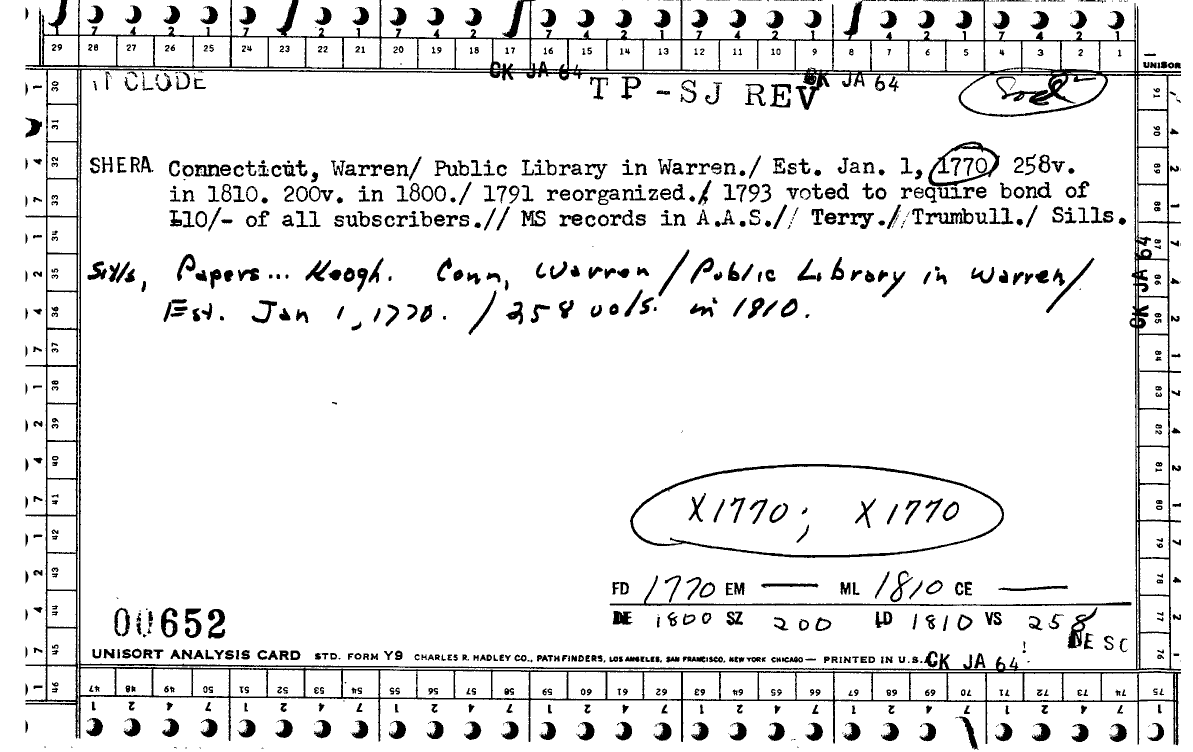 1 7 4 2 1 7 4 2 1 7 4 2 1 7 4 2 1 7 4 2 1 7 4 2 1
29 28 27 26 25 24 23 22 21 20 19 18 17 16 15 14 13 12 11 10 9 8 7 6 5 4 3 2 1
UNISOR
CK JA 64 CK JA 64
CLODE TP-SJ REV
SHERA Connecticut, Warren/ Public Library in Warren./ Est. Jan. 1, 1770/ 258v.
in 1810. 200v. in 1800./ 1791 reorganized./ 1793 voted to require bond of
£10/- of all subscribers.// MS records in A.A.S.// Terry.//Trumbull./ Sills.
Sills, Papers... Keogh. Conn, Warren/Public Library in Warren/
Est. Jan 1, 1770. / 258 vols. in 1810.
CK JA 64
X1770; X1770
FD 1770 EM — ML 1810 CE —
DE 1800 SZ 200 LD 1810 VS 258
NE SC
00652
UNISORT ANALYSIS CARD STD. FORM Y9 CHARLES R. HADLEY CO., PATHFINDERS, LOS ANGELES, SAN FRANCISCO, NEW YORK CHICAGO — PRINTED IN U.S.
CK JA 64
30 31 32 33 34 35 36 37 38 39 40 41 42 43 44 45 46
91 90 89 88 87 86 85 84 83 82 81 80 79 78 77 76
47 48 49 50 51 52 53 54 55 56 57 58 59 60 61 62 63 64 65 66 67 68 69 70 71 72 73 74 75
1 2 4 7 1 2 4 7 1 2 4 7 1 2 4 7 1 2 4 7 1 2 4 7 1 2 4 7 1